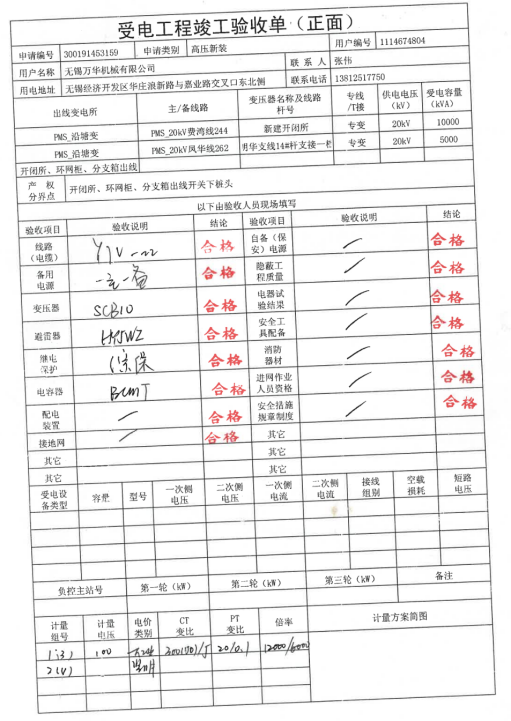 受电工程竣工验收单（正面）
申请编号 300191453159 申请类别 高压新装 用户编号 1114674804
用户名称 无锡万华机械有限公司 联系人 张伟
用电地址 无锡经济开发区华庄浪新路与嘉业路交叉口东北侧 联系电话 13812517750
出线变电所 主/备线路 变压器名称及线路杆号 专线/T接 供电电压（kV） 受电容量（kVA）
PMS_沿塘变 PMS_20kV费湾线244 新建开闭所 专变 20kV 10000
PMS_沿塘变 PMS_20kV风华线262 明华支线14#杆支接一杆 专变 20kV 5000
开闭所、环网柜、分支箱出线
产权分界点 开闭所、环网柜、分支箱出线开关下桩头
以下由验收人员现场填写
验收项目 验收说明 结论 验收项目 验收说明 结论
线路（电缆） YJV-22 合格 自备（保安）电源 / 合格
备用电源 一主一备 合格 隐蔽工程质量 / 合格
变压器 SCB10 合格 电器试验结果 / 合格
避雷器 HY5WZ 合格 安全工具配备 / 合格
继电保护 综保 合格 消防器材 / 合格
电容器 合格 进网作业人员资格 / 合格
配电装置 / 合格 安全措施规章制度 / 合格
接地网 / 合格 其它
其它 其它
其它 其它
受电设备类型 容量 型号 一次侧电压 二次侧电压 一次侧电流 二次侧电流 接线组别 空载损耗 短路电压
负控主站号 第一轮（kW） 第二轮（kW） 第三轮（kW） 备注
计量组号 计量电压 电价类别 CT变比 PT变比 倍率 计量方案简图
100 20/0.1 12000/6000